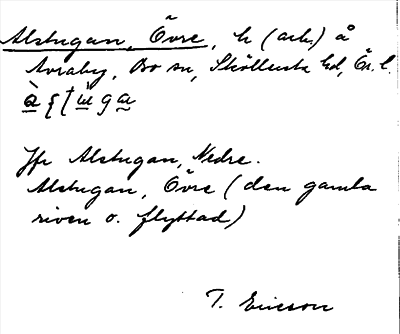 Alstugan, Övre, h (ark.) å
Avraby, Bo sn, Sköllersta hd, Ör. l.
Jfr Alstugan, Nedre.
Alstugan, Övre (den gamla
riven o. flyttad)
T. Ericson